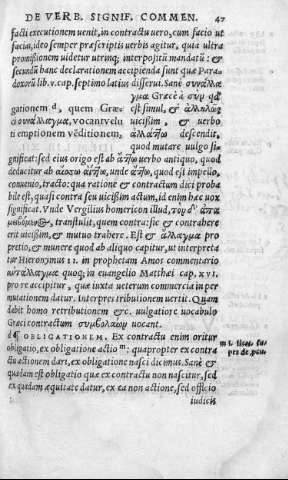 DE VERB. SIGNIF. COMMEN. 42
facti executionem uenit, in contractu uero, cum facio ut
facias, ideo semper præscriptis uerbis agitur, quia ultra
promissionem uidetur utrinq; interpositū mandatū: &
secundū hanc declarationem accipienda sunt quæ Para-
doxorū lib. v. cap. septimo latius disserui. Sanè συνάλλα
γμα Græcè à σὺν
gationem , quem Græ- est simul, &
ci συνάλλαγμα, vocant velu uicissim, & uerbo
ti emptionem vēditionem, descendit,
quod mutare uulgo si-
gnificat: sed eius origo est ab uerbo antiquo, quod
deducitur ab unde quod est impello,
conuenio, tracto: qua ratione & contractum dici proba
bile est, quasi conuentū seu uicissim actum, id enim hæc uox
significat. Vnde Vergilius homericon illud,
transtulit, quem contra: sic & contrahere
erit uicissim, & mutuo trahere. Est & pro
pretio, & munere quod ab aliquo capitur, ut interpreta
tur Hieronymus in prophetam Amos commentario
quoq; in euangelio Matthæi cap. XVI.
pro re accipitur, quæ iuxta ueterum commercia in per
mutationem datur. Interpres tribulionem uertit. Quam
dabit homo retributionem &c. uulgatiore uocabulo
Græci contractum συμβόλαιον uocant.
OBLIGATIONEM. Ex contractu enim oritur
obligatio, ex obligatione actio: quapropter ex contra
ctu actionem dari, ex obligatione nasci dicimus. Sanè &
quædam est obligatio quæ ex contractu non nascitur, sed
ex quadam æquitate datur, ex ea non actione, sed officio
iudicis